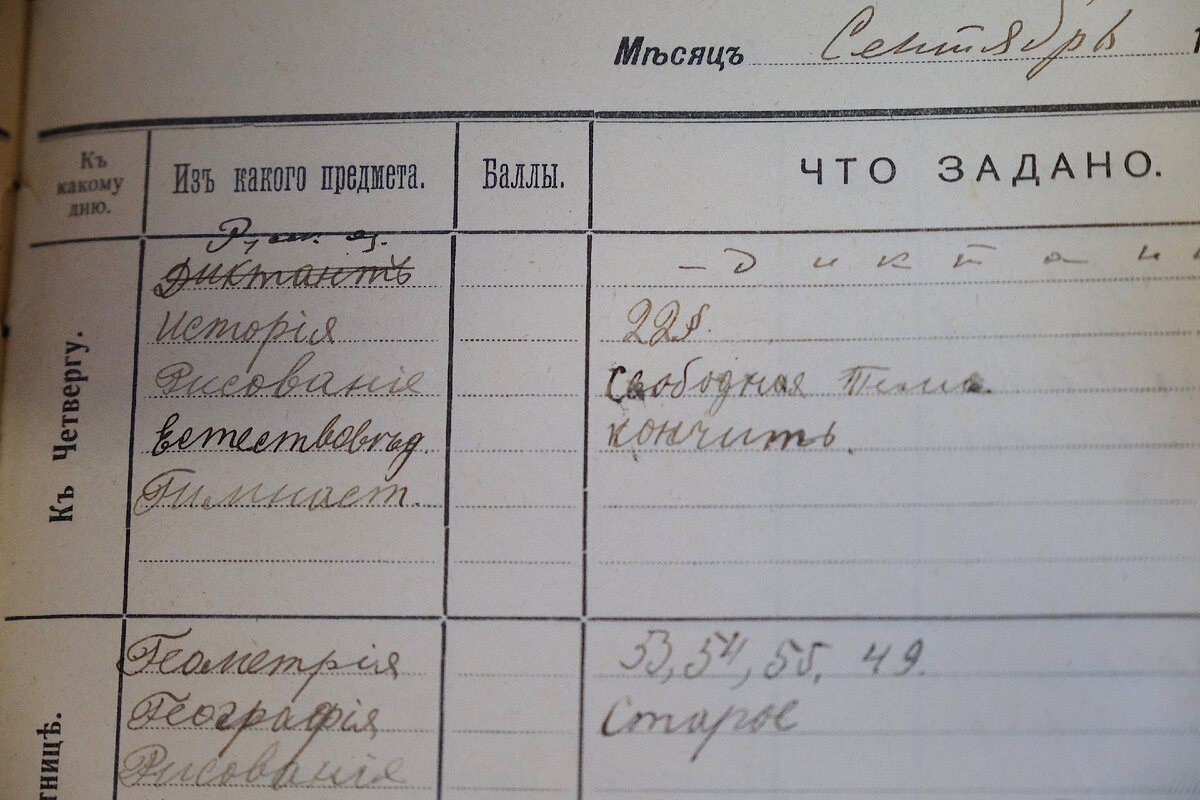 Мѣсяцъ Сентябрь 1
Къ какому дню.
Изъ какого предмета.
Баллы.
ЧТО ЗАДАНО.
Къ Четвергу.
Русск. яз.
Диктантъ - диктан
Исторія 22§.
Рисованіе Свободная тема.
Естествовѣд. кончить.
Гимнаст.
тницѣ.
Геометрія 53, 54, 55, 49.
Географія Старое
Рисованіе